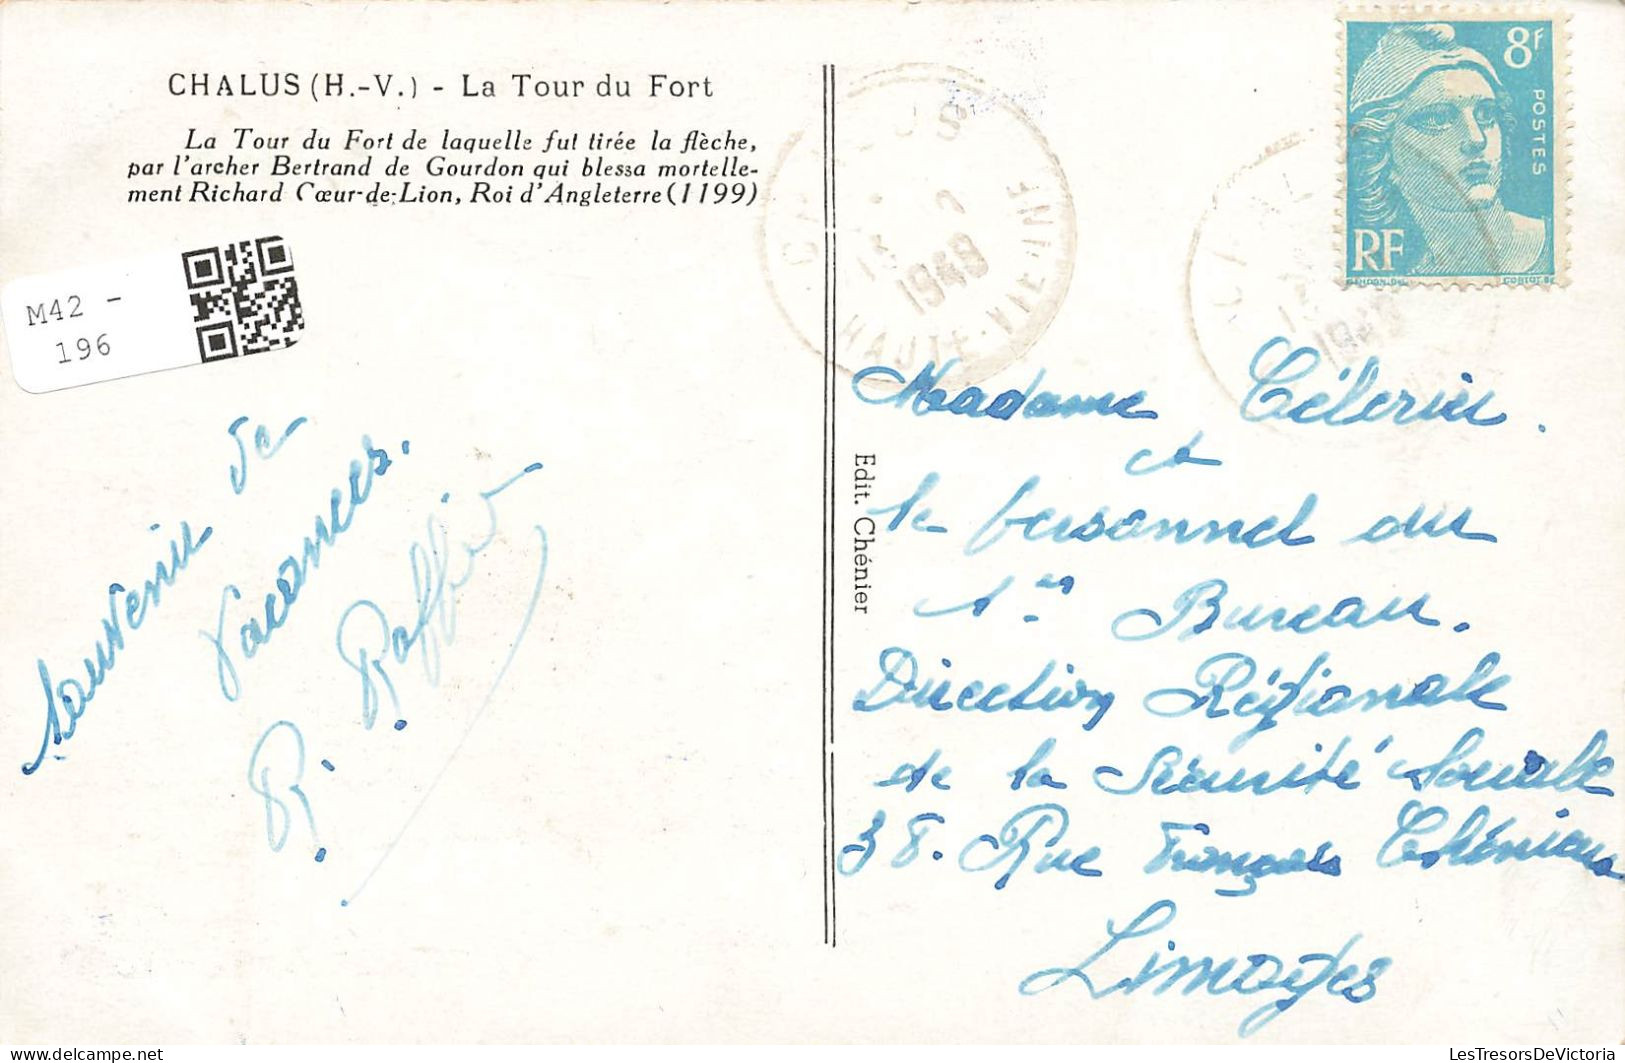 CHALUS (H.-V.) - La Tour du Fort
La Tour du Fort de laquelle fut tirée la flèche,
par l'archer Bertrand de Gourdon qui blessa mortelle-
ment Richard Cœur-de-Lion, Roi d'Angleterre (1199)
M42 -
196
Souvenir de
Vacances.
R. Raffier
Edit. Chénier
8F
POSTES
RF
GANDON DEL
CORTOT SC
HAUTE-VIENNE
1949
Madame Célerier.
et
le personnel du
1er Bureau.
Direction Régionale
de la Sécurité Sociale
38. Rue François Chénieux
Limoges
LesTresorsDeVictoria
delcampe.net